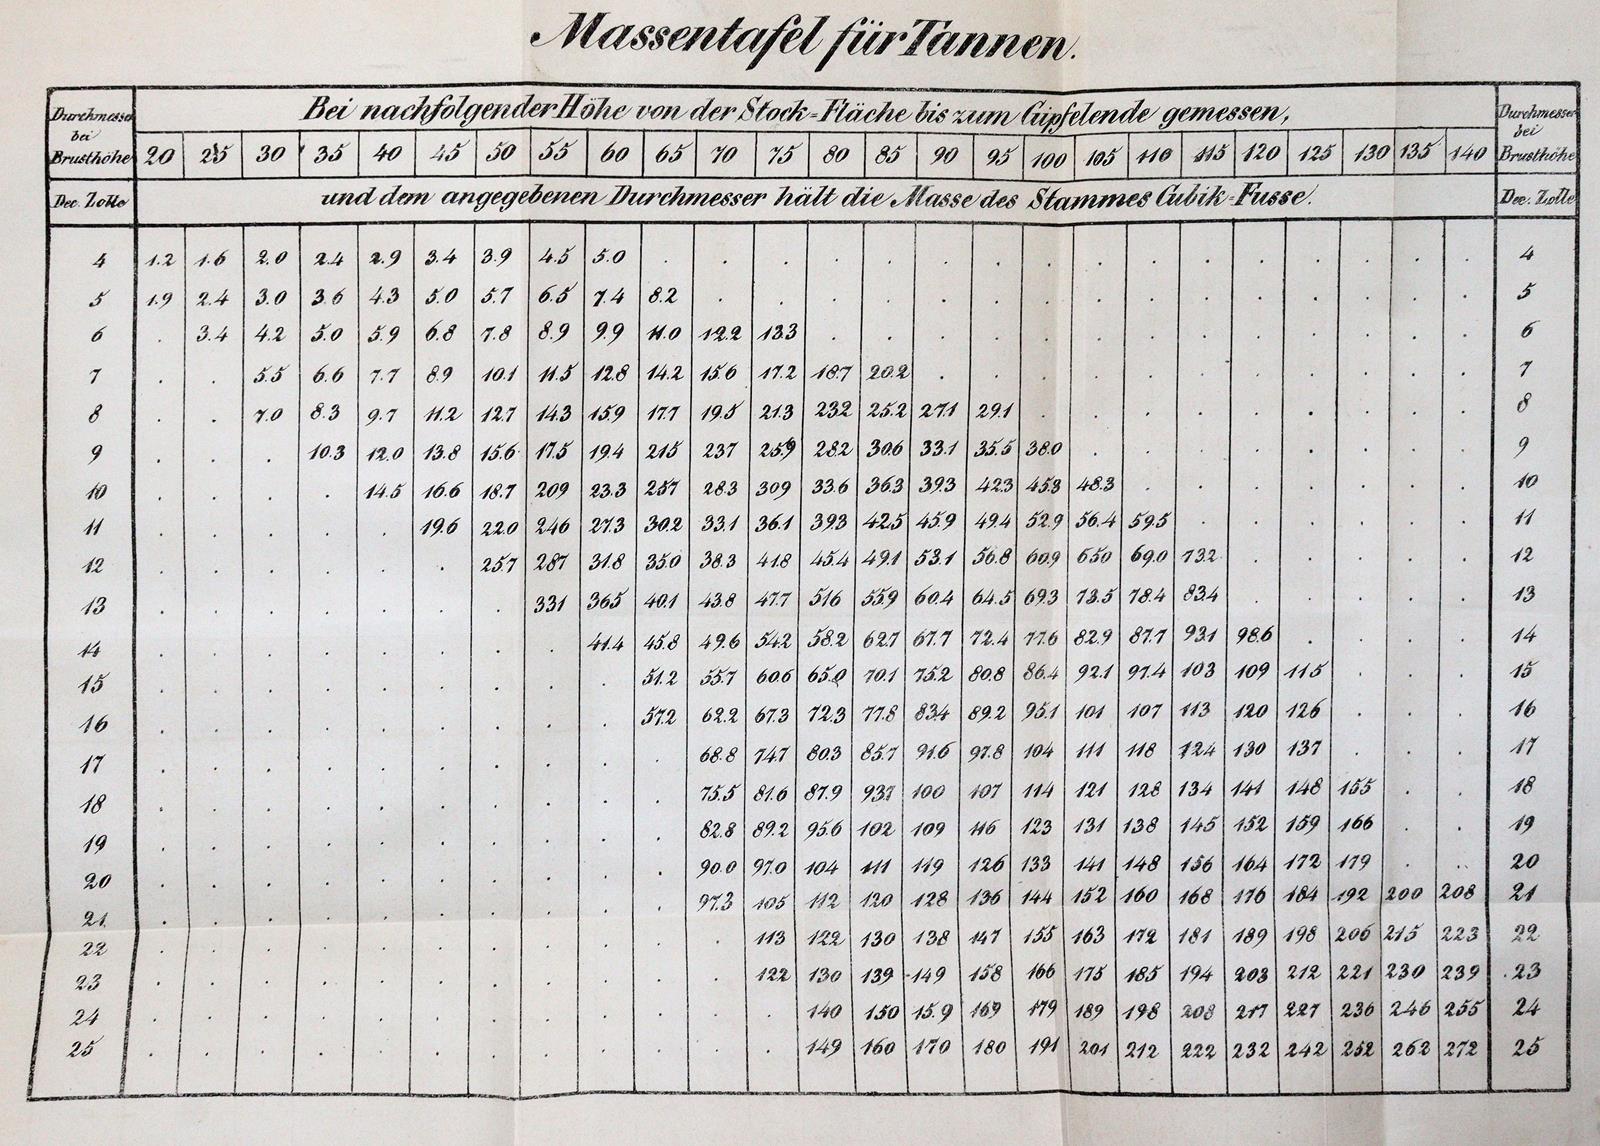 Massentafel für Tannen.
Durchmesser bei Brusthöhe Bei nachfolgender Höhe von der Stock=Fläche bis zum Gipfelende gemessen, Durchmesser bei Brusthöhe
20 25 30 35 40 45 50 55 60 65 70 75 80 85 90 95 100 105 110 115 120 125 130 135 140
Dec. Zolle und dem angegebenen Durchmesser hält die Masse des Stammes Cubik=Fusse. Dec. Zolle
4 1.2 1.6 2.0 2.4 2.9 3.4 3.9 4.5 5.0 . . . . . . . . . . . . . . . . 4
5 1.9 2.4 3.0 3.6 4.3 5.0 5.7 6.5 7.4 8.2 . . . . . . . . . . . . . . . 5
6 . 3.4 4.2 5.0 5.9 6.8 7.8 8.9 9.9 11.0 12.2 13.3 . . . . . . . . . . . . . 6
7 . . 5.5 6.6 7.7 8.9 10.1 11.5 12.8 14.2 15.6 17.2 18.7 20.2 . . . . . . . . . . . 7
8 . . 7.0 8.3 9.7 11.2 12.7 14.3 15.9 17.7 19.5 21.3 23.2 25.2 27.1 29.1 . . . . . . . . . 8
9 . . . 10.3 12.0 13.8 15.6 17.5 19.4 21.5 23.7 25.9 28.2 30.6 33.1 35.5 38.0 . . . . . . . . 9
10 . . . . 14.5 16.6 18.7 20.9 23.3 25.7 28.3 30.9 33.6 36.3 39.3 42.3 45.3 48.3 . . . . . . . 10
11 . . . . . 19.6 22.0 24.6 27.3 30.2 33.1 36.1 39.3 42.5 45.9 49.4 52.9 56.4 59.5 . . . . . . 11
12 . . . . . . 25.7 28.7 31.8 35.0 38.3 41.8 45.4 49.1 53.1 56.8 60.9 65.0 69.0 73.2 . . . . . 12
13 . . . . . . . 33.1 36.5 40.1 43.8 47.7 51.6 55.9 60.4 64.5 69.3 73.5 78.4 83.4 . . . . . 13
14 . . . . . . . . 41.4 45.8 49.6 54.2 58.2 62.7 67.7 72.4 77.6 82.9 87.7 93.1 98.6 . . . . 14
15 . . . . . . . . . 51.2 55.7 60.6 65.0 70.1 75.2 80.8 86.4 92.1 97.4 103 109 115 . . . 15
16 . . . . . . . . . 57.2 62.2 67.3 72.3 77.8 83.4 89.2 95.1 101 107 113 120 126 . . . 16
17 . . . . . . . . . . 68.8 74.7 80.3 85.7 91.6 97.8 104 111 118 124 130 137 . . . 17
18 . . . . . . . . . . 75.5 81.6 87.9 93.7 100 107 114 121 128 134 141 148 155 . . 18
19 . . . . . . . . . . 82.8 89.2 95.6 102 109 116 123 131 138 145 152 159 166 . . 19
20 . . . . . . . . . . 90.0 97.0 104 111 119 126 133 141 148 156 164 172 179 . . 20
21 . . . . . . . . . . 97.3 105 112 120 128 136 144 152 160 168 176 184 192 200 208 21
22 . . . . . . . . . . . 113 122 130 138 147 155 163 172 181 189 198 206 215 223 22
23 . . . . . . . . . . . 122 130 139 149 158 166 175 185 194 203 212 221 230 239 23
24 . . . . . . . . . . . . 140 150 15.9 169 179 189 198 208 217 227 236 246 255 24
25 . . . . . . . . . . . . 149 160 170 180 191 201 212 222 232 242 252 262 272 25